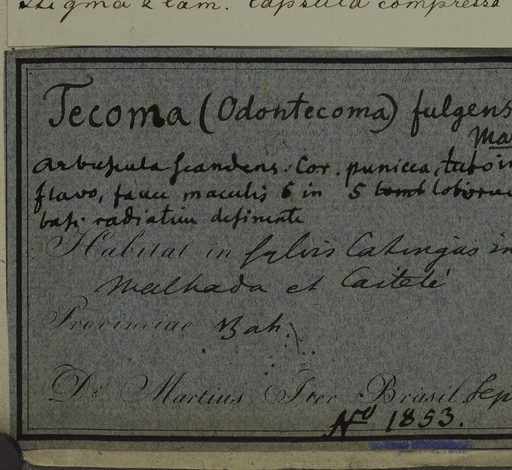 Stigma 2 lam. Capsula compressa
Tecoma (Odontecoma) fulgens
Mar
Arbuscula scandens. Cor. punicea, tubo in
flavo, fauce maculis 6 in 5 lomb loborum
basi radiatim definente
Habitat in sylvis Catingas in
Malhada et Caiteté
Provinciae Bah.
Dr. Martius Iter Brasil Sep
No 1853.